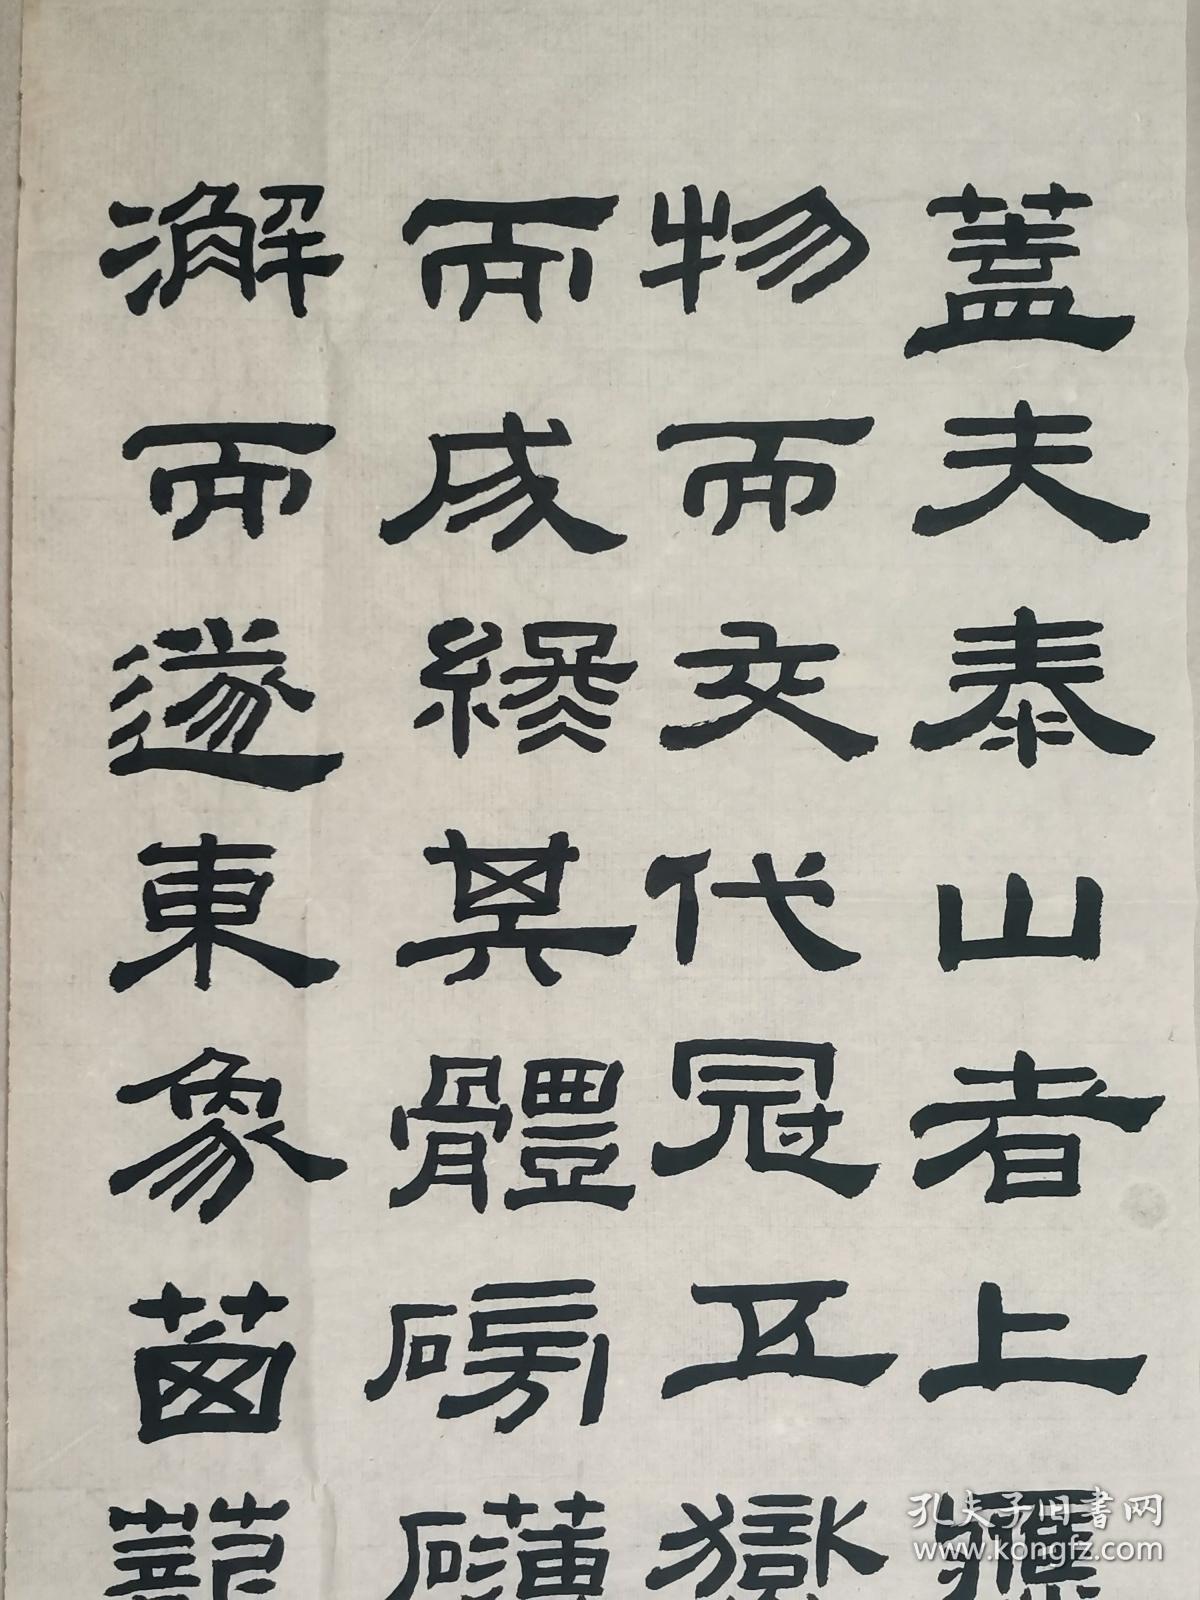 蓋夫泰山者上
物而交代冠五嶽
而成終其體磅礴
澥而遂東象茵
孔夫子旧書网
www.kongfz.com